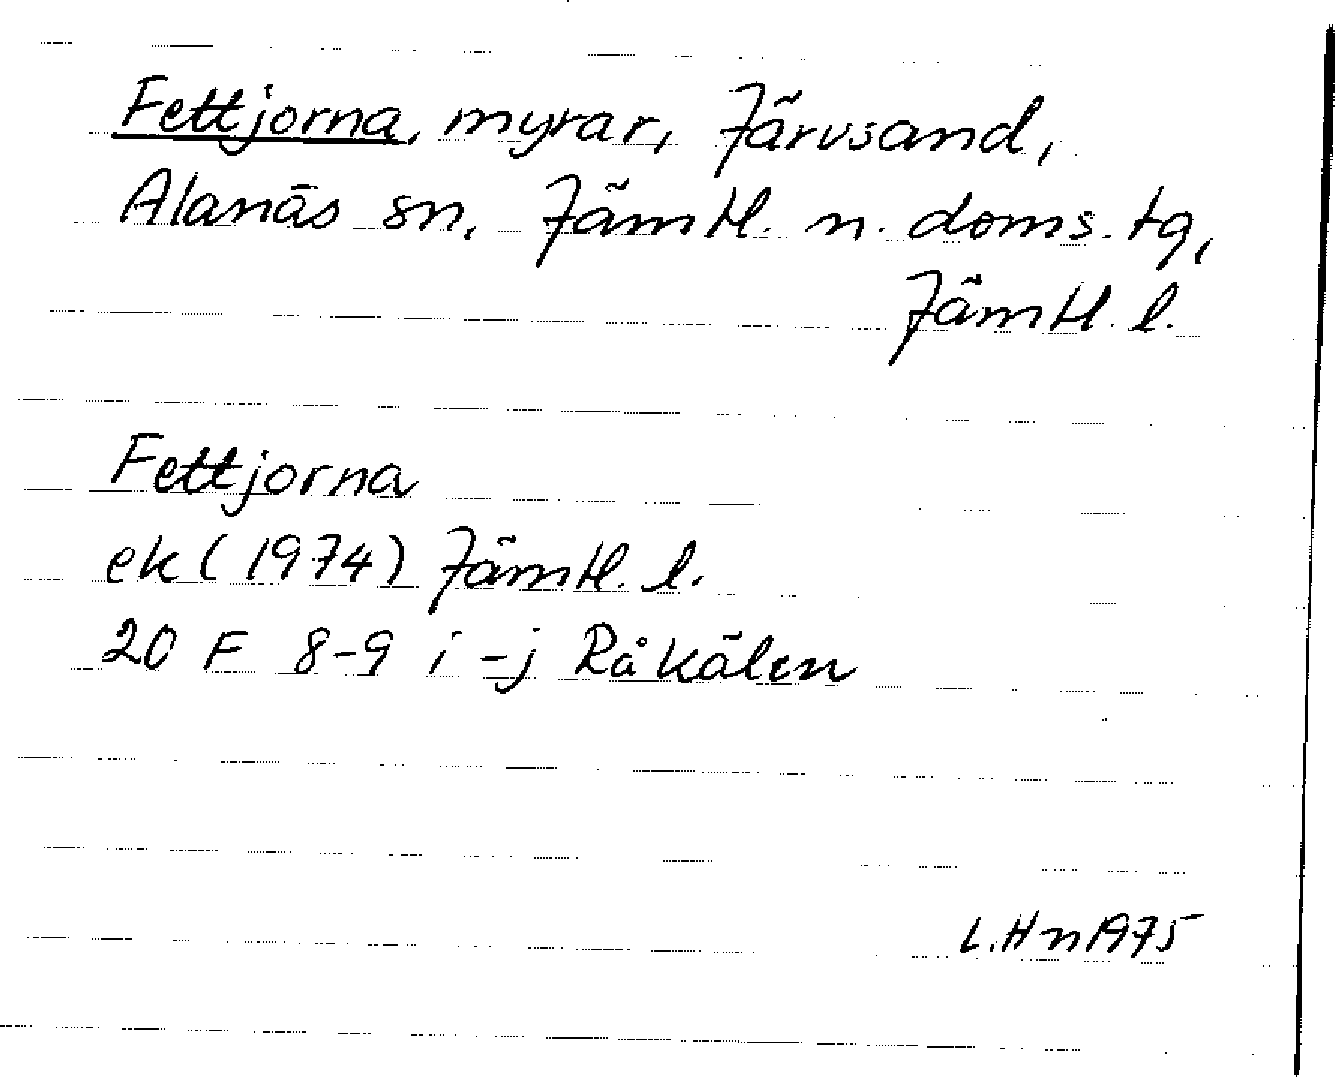 Fettjorna, myrar, Järvsand,
Alanäs sn, Jämtl. n. doms. tg,
Jämtl. l.
Fettjorna
ek (1974) Jämtl. l.
20 F 8-9 i - j Råkälen
L. Hn 1975